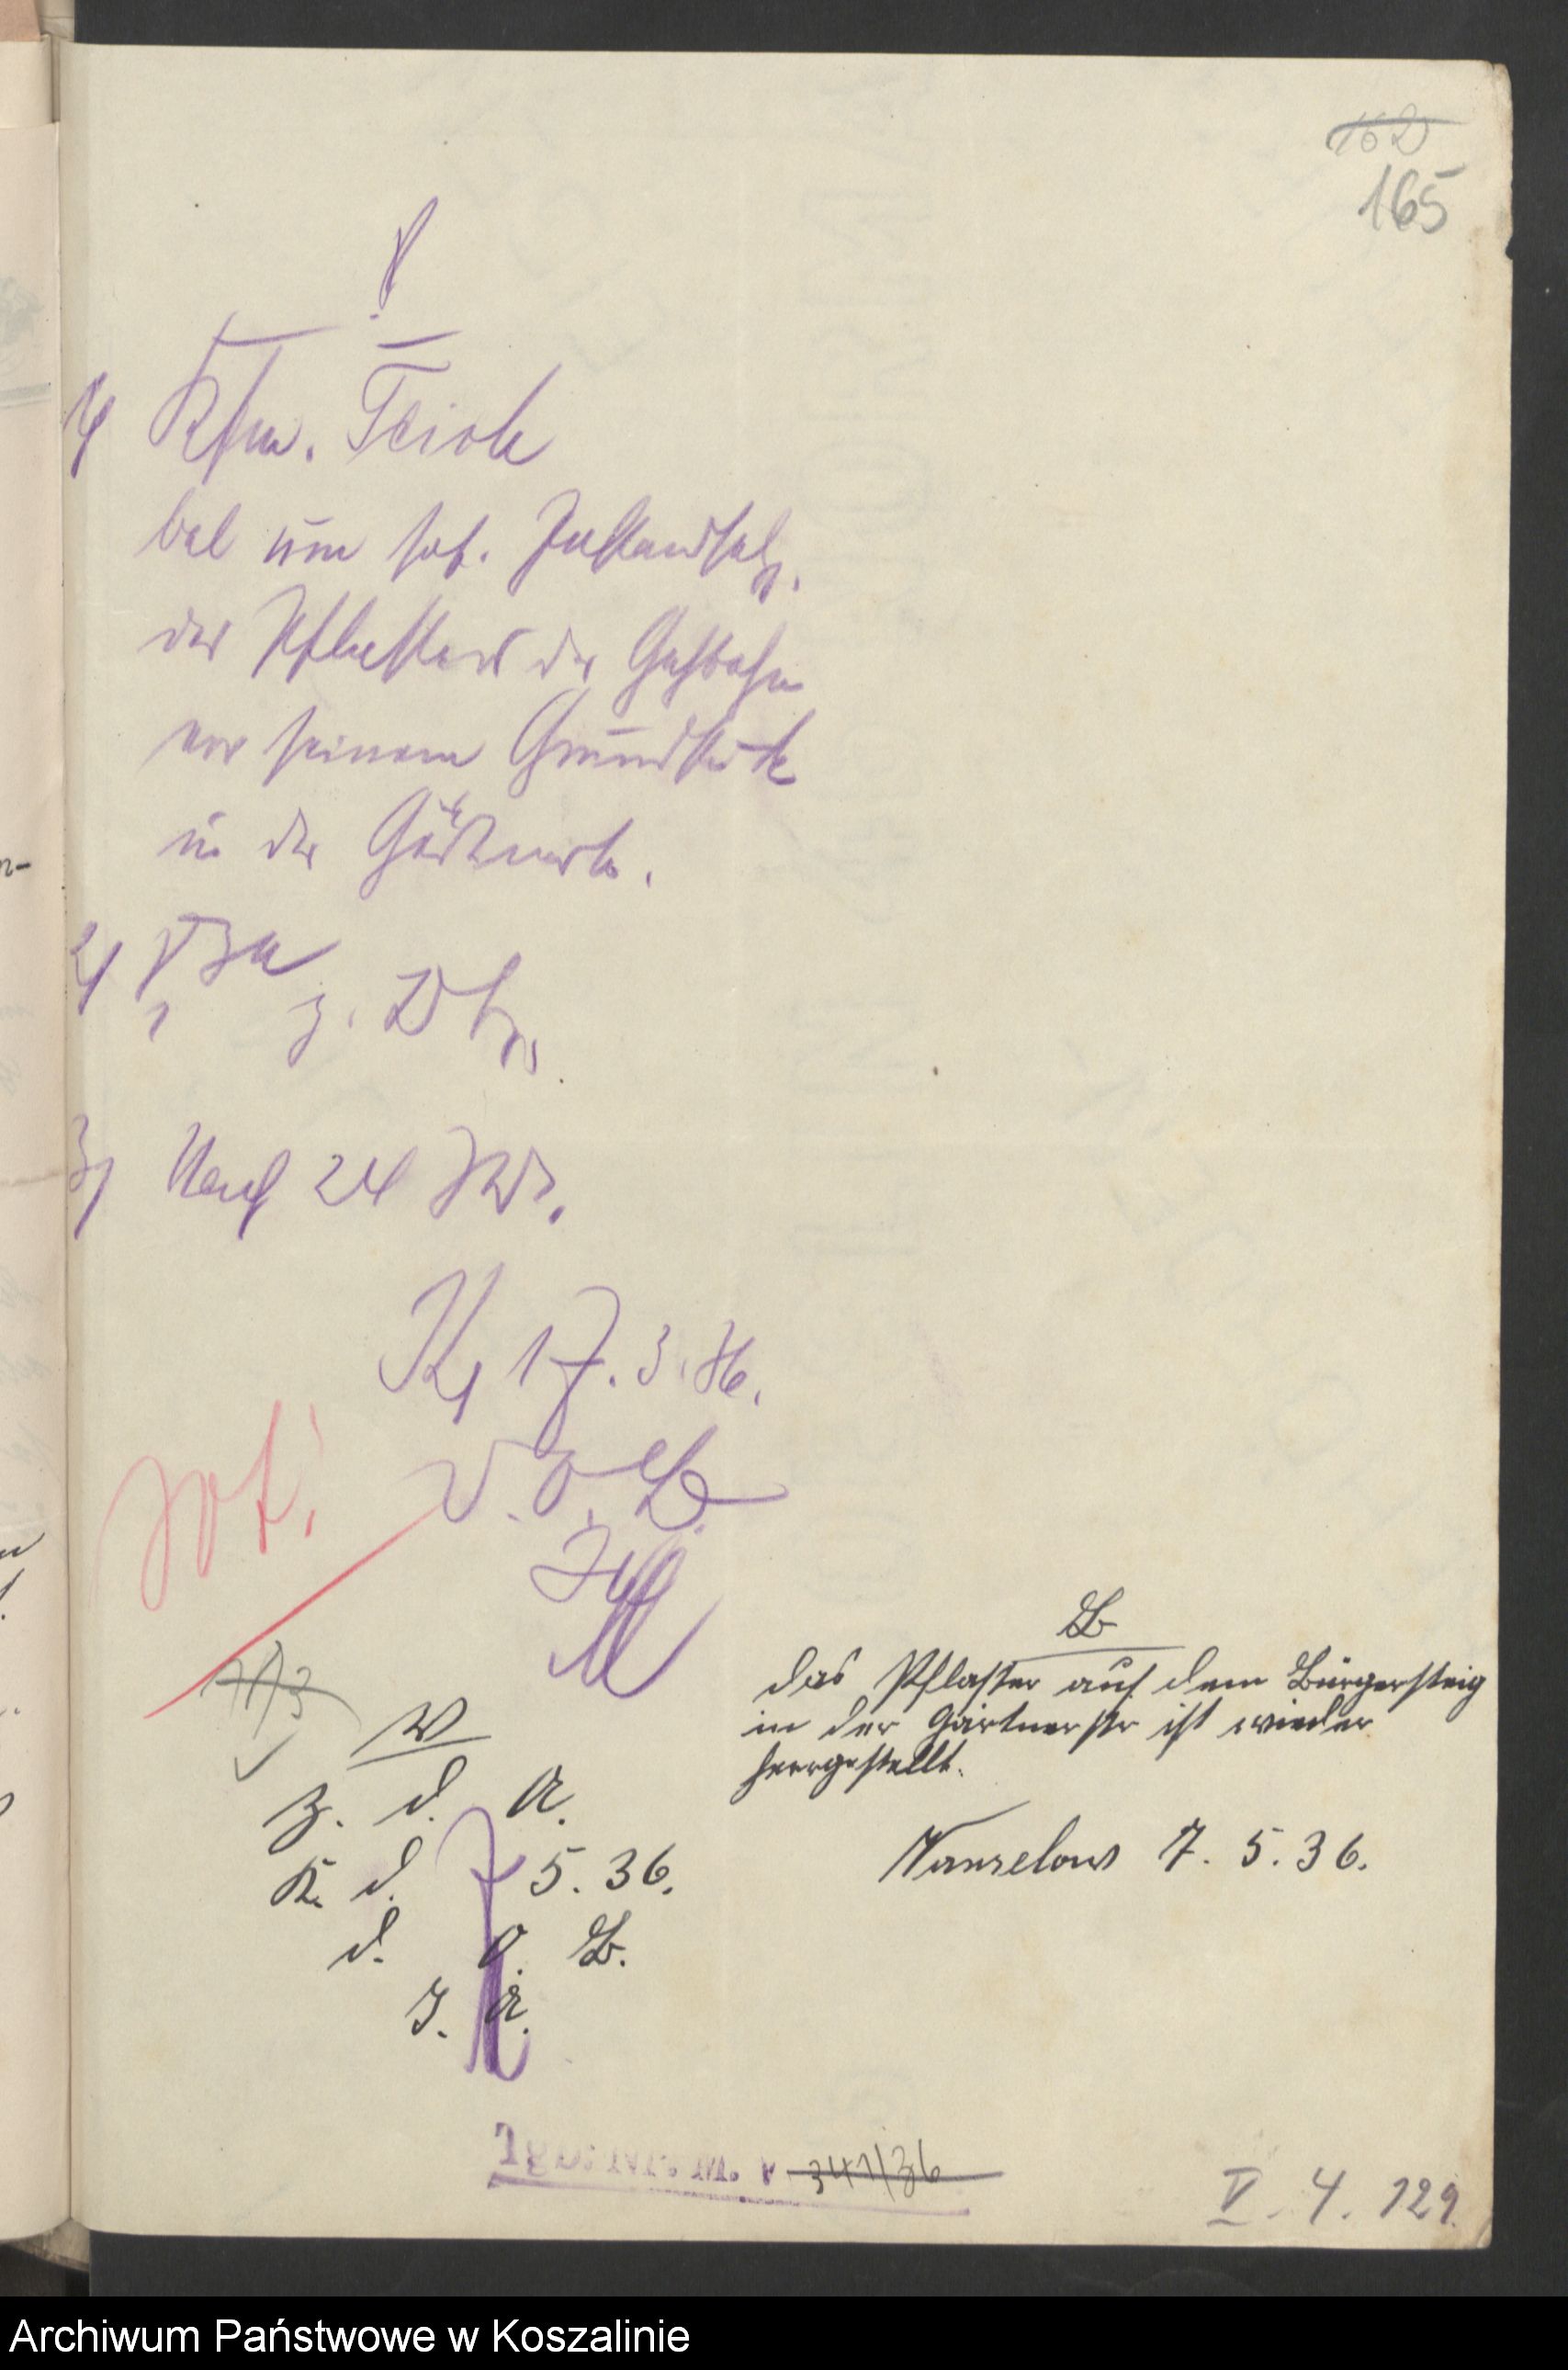 162
165
V
1) Kfm.
bal um sof. Instandsetzg.
des Pflasters der Gehbahn
vor seinem Grundstück
in der Gärtnerstr.
2) z.
3) Nach 24
K, 17. 3. 36.
D. O. B.
Sof.!
V
z. d. A.
K. d. 7 5. 36.
d. O. B.
J. A.
B
das Pflaster auf dem Bürgersteig
in der Gärtnerstr ist wieder
hergestellt.
7. 5. 36.
Tgb. Nr. M. 341/36
V. 4. 129.
Archiwum Państwowe w Koszalinie